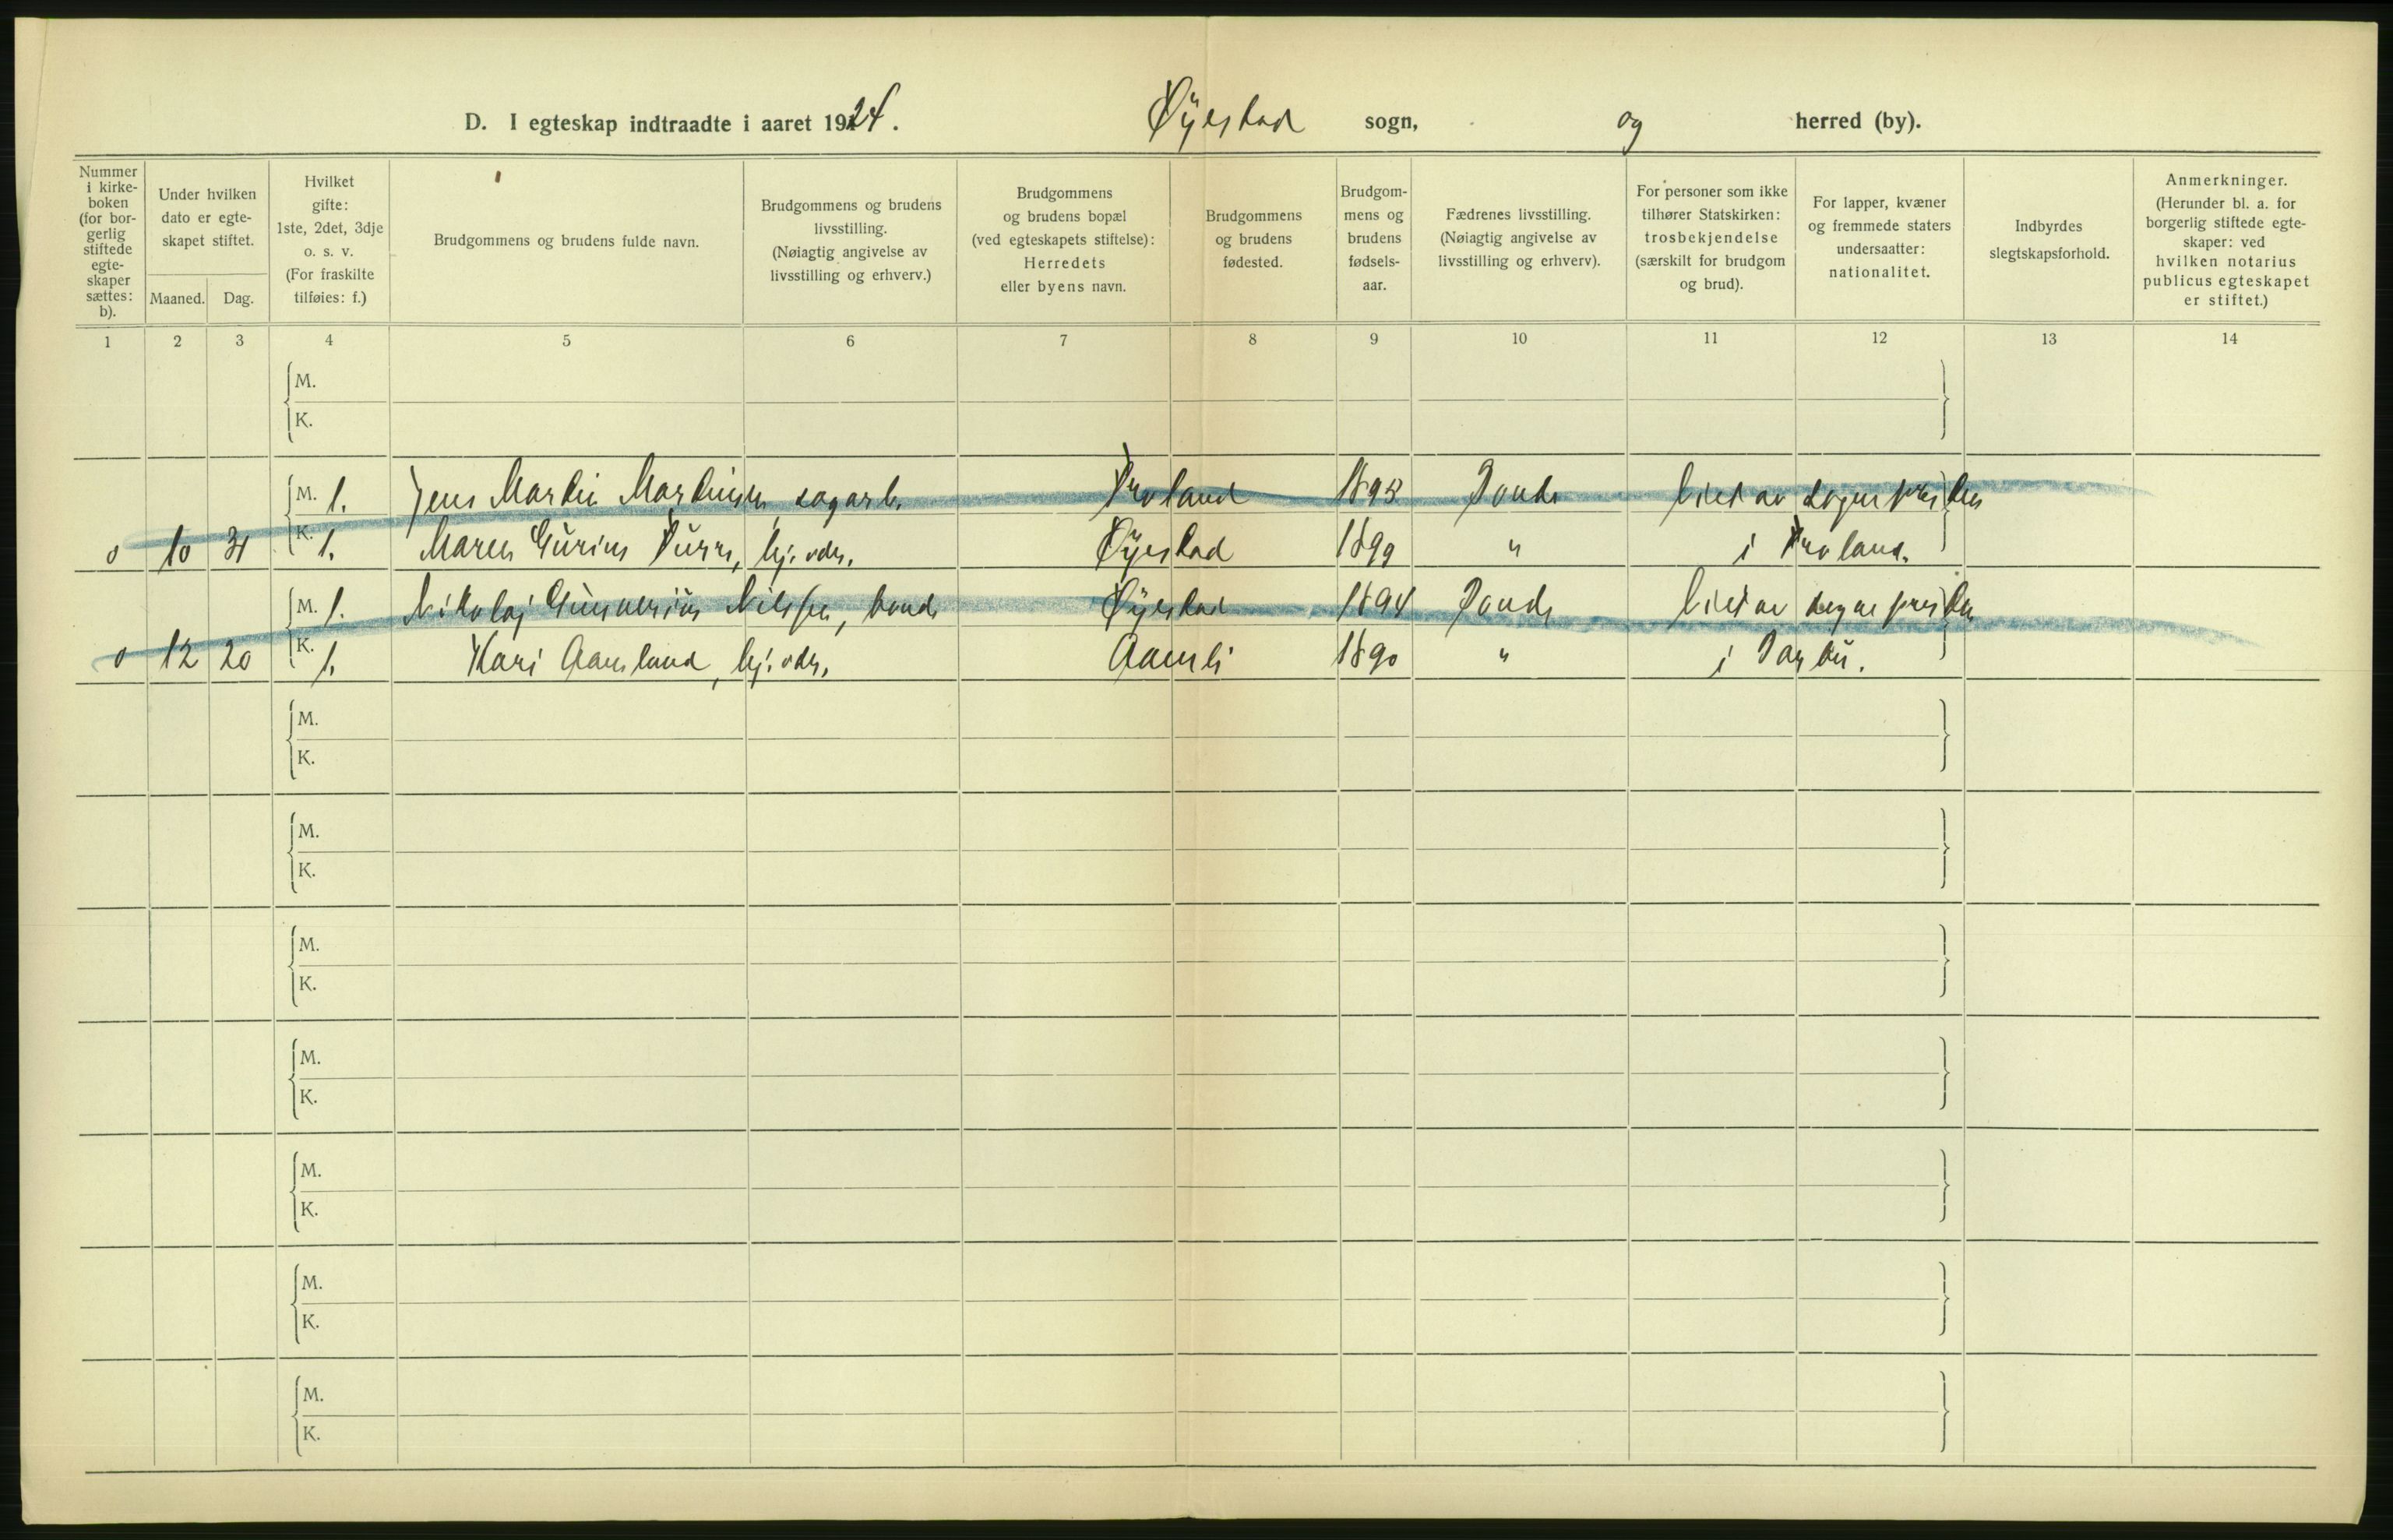 D. I egteskap indtraadte i aaret 1924. Øyestad sogn, og herred (by).
Nummer i kirke-boken (for bor-gerlig stiftede egte-skaper sættes: b).
Under hvilken dato er egte-skapet stiftet.
Maaned. Dag.
Hvilket gifte: 1ste, 2det, 3dje o. s. v. (For fraskilte tilføies: f.)
Brudgommens og brudens fulde navn.
Brudgommens og brudens livsstilling. (Nøiagtig angivelse av livsstilling og erhverv.)
Brudgommens og brudens bopæl (ved egteskapets stiftelse): Herredets eller byens navn.
Brudgommens og brudens fødested.
Brudgom-mens og brudens fødsels-aar.
Fædrenes livsstilling. (Nøiagtig angivelse av livsstilling og erhverv).
For personer som ikke tilhører Statskirken: trosbekjendelse (særskilt for brudgom og brud).
For lapper, kvæner og fremmede staters undersaatter: nationalitet.
Indbyrdes slegtskapsforhold.
Anmerkninger. (Herunder bl. a. for borgerlig stiftede egte-skaper: ved hvilken notarius publicus egteskapet er stiftet.)
1 2 3 4 5 6 7 8 9 10 11 12 13 14
M.
K.
M. 1. Jens Martin Martinsen, sagarb. Froland Bonde Viet av sognepresten
0 10 31 K. 1. Maren Gurine hj. vær. Øyestad 1899 " i Froland.
M. 1. Nikolaj Gunnerius Nilsen, bonde Øyestad 1894 Bonde Viet av sognepresten
0 12 20 K. 1. Kari Aamland, hj. vær. Aamli 1890 " i Barbu.
M.
K.
M.
K.
M.
K.
M.
K.
M.
K.
M.
K.
M.
K.